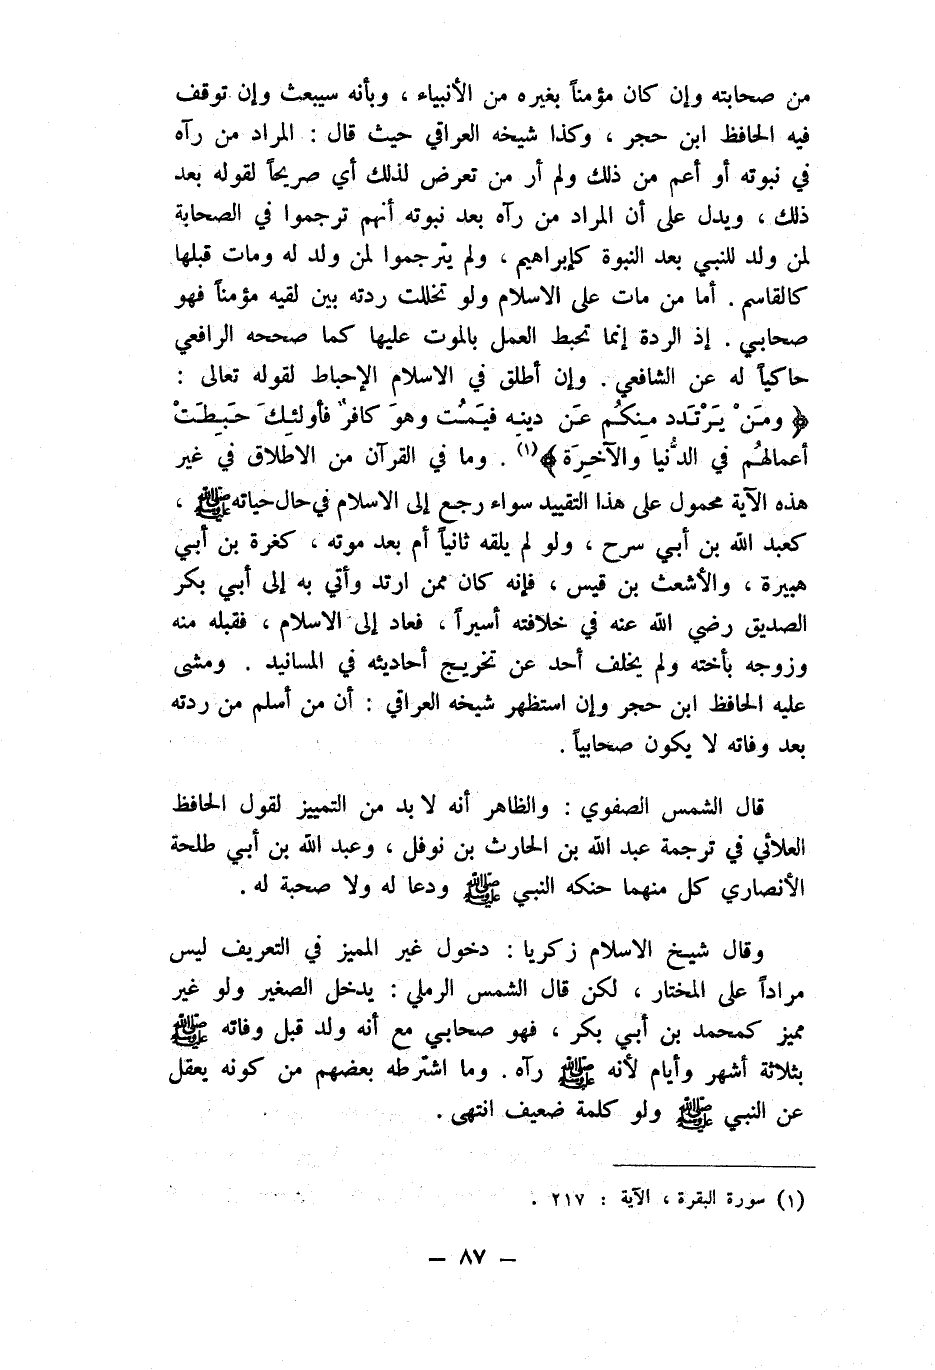 من صحابته وإن كان مؤمناً بغيره من الأنبياء ، وبأنه سيبعث وإن توقف
فيه الحافظ ابن حجر ، وكذا شيخه العراقي حيث قال : المراد من رآه
في نبوته أو أعم من ذلك ولم أر من تعرض لذلك أي صريحاً لقوله بعد
ذلك ، ويدل على أن المراد من رآه بعد نبوته أنهم ترجموا في الصحابة
لمن ولد للنبي بعد النبوة كإبراهيم ، ولم يترجموا لمن ولد له ومات قبلها
كالقاسم . أما من مات على الاسلام ولو تخللت ردته بين لقيه مؤمناً فهو
صحابي . إذ الردة إنما تحبط العمل بالموت عليها كما صححه الرافعي
حاكياً له عن الشافعي . وإن أطلق في الاسلام الإحباط لقوله تعالى :
﴿ ومَنْ يَرْتَدد مِنكُم عَن دينِه فيَمُت وهوَ كافرٌ فأولئِكَ حَبِطَتْ
أعمالهُم في الدُّنيا والآخِرَة ﴾(١) . وما في القرآن من الاطلاق في غير
هذه الآية محمول على هذا التقييد سواء رجع إلى الاسلام في حال حياته ﷺ ،
كعبد الله بن أبي سرح ، ولو لم يلقه ثانياً أم بعد موته ، كغرة بن أبي
هبيرة ، والأشعث بن قيس ، فإنه كان ممن ارتد وأتي به إلى أبي بكر
الصديق رضي الله عنه في خلافته أسيراً ، فعاد إلى الاسلام ، فقبله منه
وزوجه بأخته ولم يخلف أحد عن تخريج أحاديثه في المسانيد . ومشى
عليه الحافظ ابن حجر وإن استظهر شيخه العراقي : أن من أسلم من ردته
بعد وفاته لا يكون صحابياً .
قال الشمس الصفوي : والظاهر أنه لا بد من التمييز لقول الحافظ
العلائي في ترجمة عبد الله بن الحارث بن نوفل ، وعبد الله بن أبي طلحة
الأنصاري كل منهما حنكه النبي ﷺ ودعا له ولا صحبة له .
وقال شيخ الاسلام زكريا : دخول غير المميز في التعريف ليس
مراداً على المختار ، لكن قال الشمس الرملي : يدخل الصغير ولو غير
مميز كمحمد بن أبي بكر ، فهو صحابي مع أنه ولد قبل وفاته ﷺ
بثلاثة أشهر وأيام لأنه ﷺ رآه . وما اشترطه بعضهم من كونه يعقل
عن النبي ﷺ ولو كلمة ضعيف انتهى .
(١) سورة البقرة ، الآية : ٢١٧ .
– ٨٧ –